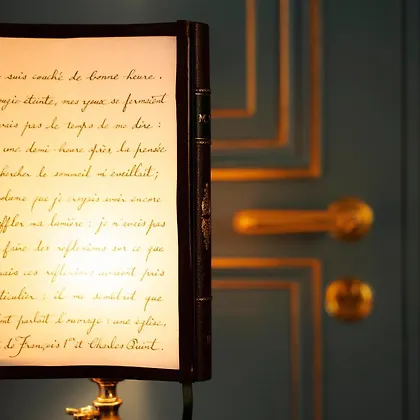 suis couché de bonne heure.
ougie éteinte, mes yeux se fermaient
vais pas le temps de me dire :
une demi-heure après la pensée
hercher le sommeil m'éveillait ;
olume que je croyais avoir encore
ffler ma lumière ; je n'avais pas
faire des réflexions sur ce que
mais ces réflexions avaient pris
ticulier ; il me semblait que
ont parlait l'ouvrage : une église,
de François Ier et Charles Quint.